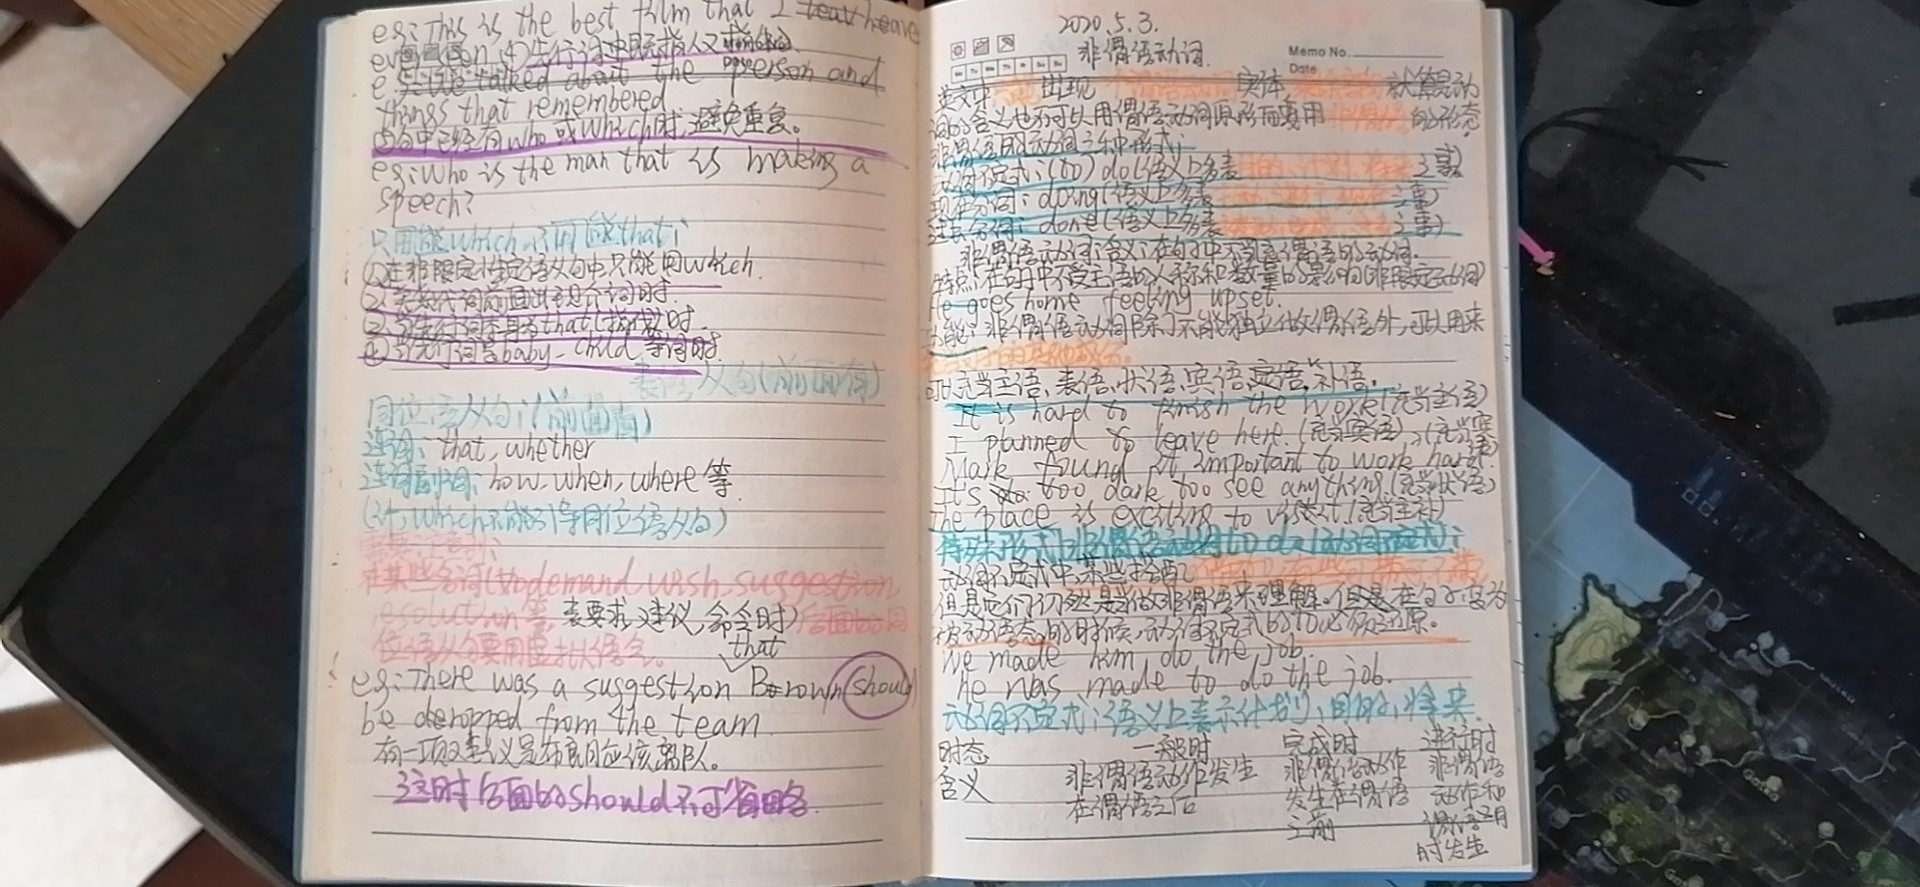 eg: This is the best film that I heave
even seen (4)先行词中既指人又指物
e.g: He talked about the pperson and
things that remembered
⑤句中已经有who或which时,避免重复。
eg: who is the man that is making a
speech?
只用能which,不可能that:
①在非限定性定语从句中只能用which.
②关系代词前面出现介词时.
③当先行词本身为that(指代)时.
④当先行词是baby、child等词时.
表语从句(前面有)
同位语从句:(前面有)
连词: that, whether
连词副词: how, when, where等
(if, which不能引导同位语从句)
需要注意到:
在某些名词(demand wish suggestion
esolution等 表要求、建议、命令时)后面的同
位语从句要用虚拟语气。
that
eg: There was a suggestion Brown (shoul
be deropped from the team.
有一项建议是布朗应该离队。
这时后面的should不可省略.
2020.5.3.
非谓语动词.
Memo No.
Date
英文中 出现 实体 就算是动
词的含义也不可以用谓语动词原形而要用 的形态。
非谓语的动词三种形式:
动词不定式: (to) do (语义上多表 之事)
现在分词: doing (语义上多表 之事)
过去分词: done (语义上多表 之事)
非谓语动词:含义:在句中不当谓语的动词.
特点:在句中不受主语的人称和数量的影响(非限定动词)
He goes home feeling upset.
功能:非谓语动词除了不能独立做谓语外,可以用来
可以充当主语、表语、状语、宾语、定语、补语.
It is hard to finish the work (充当主语)
I planned to leave here. (充当宾语)
Mark found it important to work hard. (充当宾语)
It's too dark too see anything (充当状语)
The place is exciting to visit. (充当主补)
特殊形式:非谓语动词to do (动词不定式):
动词不定式中,某些搭配
但是它们仍然是当做非谓语来理解。但是在句子变为
被动语态的时候,动词不定式的to必须还原。
We made him do the job.
he was made to do the job.
动词不定式:语义上表示计划,目的,将来.
时态 一般时 完成时 进行时
含义 非谓语动作发生 非谓语动作 非谓语
在谓语之后 发生在谓语 动作和
之前 谓语同
时发生